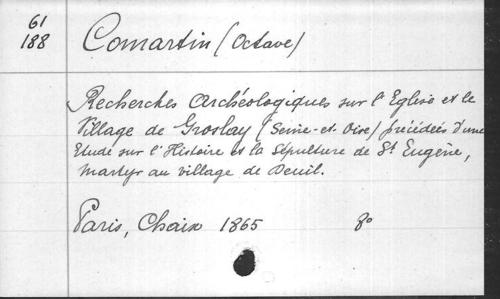 61
188
Comartin (Octave)
Recherches Archéologiques sur l'Eglise et le
Village de Groslay (Seine-et-Oise) précédées d'une
Etude sur l'Histoire et la Sépulture de St Eugène,
Martyr au village de Deuil.
Paris, Chaix 1865 8o